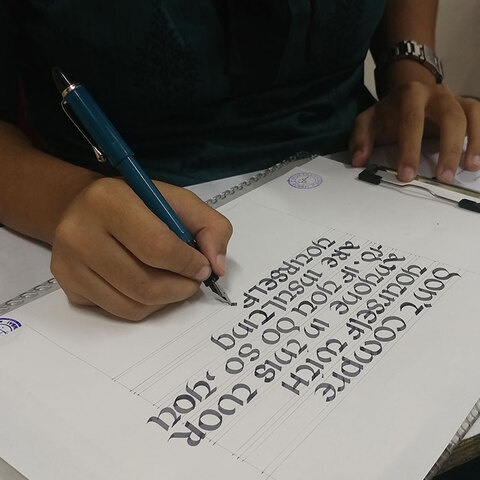 Don't compre
yourself with
anyone in this wor
ld, if you do so you
are insulting
yourself.